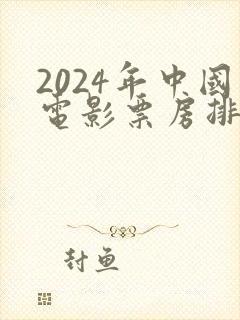 2024年中國
電影票房排
封魚